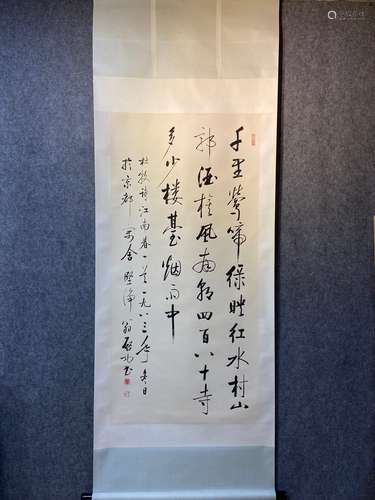 千里莺啼绿映红水村山
郭酒旗风南朝四百八十寺
多少楼台烟雨中
杜牧诗江南春一首一九八三年冬日
於京都寓舍坚净翁启功书